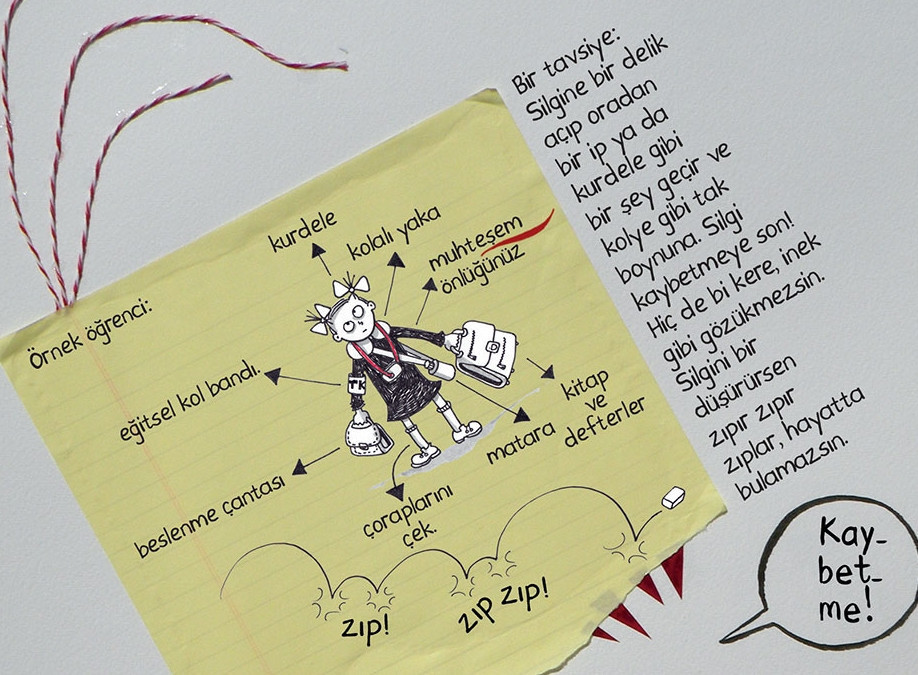 Bir tavsiye:
Silgine bir delik
açıp oradan
bir ip ya da
kurdele gibi
bir şey geçir ve
kolye gibi tak
boynuna. Silgi
kaybetmeye son!
Hiç de bi kere, inek
gibi gözükmezsin.
Silgini bir
düşürürsen
zıpır zıpır
zıplar, hayatta
bulamazsın.
Örnek öğrenci:
kurdele
kolalı yaka
muhteşem
önlüğünüz
eğitsel kol bandı.
TK
kitap
ve
defterler
matara
beslenme çantası
çoraplarını
çek.
zıp!
zıp zıp!
Kay-
bet-
me!